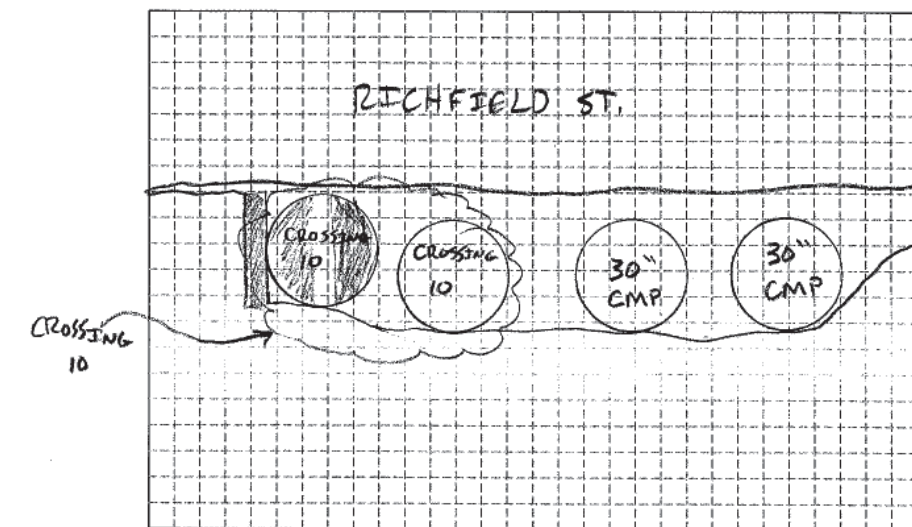 RICHFIELD ST.
CROSSING
10
CROSSING
10
30"
CMP
30"
CMP
CROSSING
10